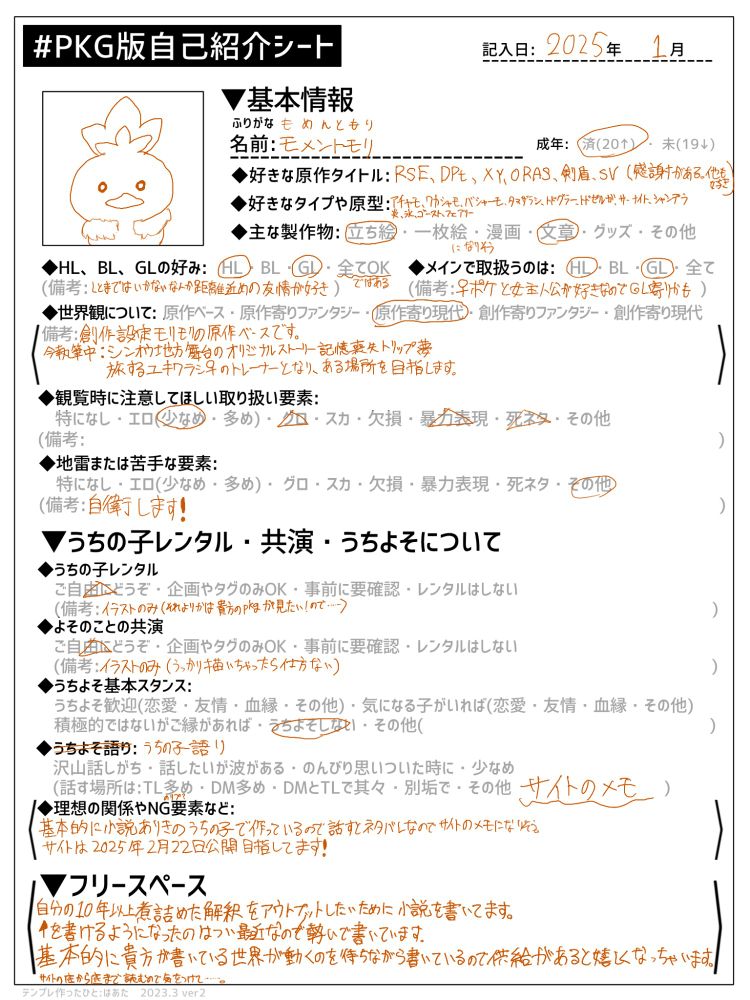 #PKG版自己紹介シート
記入日: 2025年 1月
▼基本情報
ふりがな もめんともり
名前: モメントモリ
成年: 済(20↑)・未(19↓)
◆好きな原作タイトル: RSE、DPt、XY、ORAS、剣盾、SV (感謝すがある。他も好き)
◆好きなタイプや原型: アチャモ、ワカシャモ、バシャーモ、タネダラシ、ドゲザン、サーナイト、シャンデラ
炎、氷、ゴースト、フェアリー
◆主な製作物: 立ち絵・一枚絵・漫画・文章・グッズ・その他
になりそう
◆HL、BL、GLの好み: HL・BL・GL・全てOK
ではある
(備考: Lとまではいかないなんか距離近めの友情が好き)
◆メインで取扱うのは: HL・BL・GL・全て
(備考: ♀ポケと女主人公が好きなのでGL寄りかも)
◆世界観について: 原作ベース・原作寄りファンタジー・原作寄り現代・創作寄りファンタジー・創作寄り現代
備考: 創作設定モリモリの原作ベースです。
今執筆中: シンオウ地方舞台のオリジナルストーリー 記憶喪失トリップ夢
旅するユキワラシ♀のトレーナーとなり、ある場所を目指します。
◆観覧時に注意してほしい取り扱い要素:
特になし・エロ(少なめ・多め)・グロ・スカ・欠損・暴力表現・死ネタ・その他
(備考: )
◆地雷または苦手な要素:
特になし・エロ(少なめ・多め)・グロ・スカ・欠損・暴力表現・死ネタ・その他
(備考: 自衛します! )
▼うちの子レンタル・共演・うちよそについて
◆うちの子レンタル
ご自由にどうぞ・企画やタグのみOK・事前に要確認・レンタルはしない
(備考: イラストのみ (それよりかは貴方のpkgが見たい!ので……) )
◆よそのことの共演
ご自由にどうぞ・企画やタグのみOK・事前に要確認・レンタルはしない
(備考: イラストのみ (うっかり描いちゃったら仕方ない) )
◆うちよそ基本スタンス:
うちよそ歓迎(恋愛・友情・血縁・その他)・気になる子がいれば(恋愛・友情・血縁・その他)
積極的ではないがご縁があれば・うちよそしない・その他( )
◆うちよそ語り: うちの子語り
沢山話しがち・話したいが波がある・のんびり思いついた時に・少なめ
(話す場所は:TL多め・DM多め・DMとTLで其々・別垢で・その他 サイトのメモ )
◆理想の関係やNG要素など:
基本的に小説ありきのうちの子で作っているので話すとネタバレなのでサイトのメモになりそう
サイトは2025年2月22日公開目指してます!
▼フリースペース
自分の10年以上煮詰めた解釈をアウトプットしたいために小説を書いてます。
↑を書けるようになったのはつい最近なので勢いで書いています。
基本的に貴方が書いている世界が動くのを待ちながら書いているので供給があると嬉しくなっちゃいます。
サイトの底から底まで読むので気をつけて……。
テンプレ作ったひと:はあた 2023.3 ver2